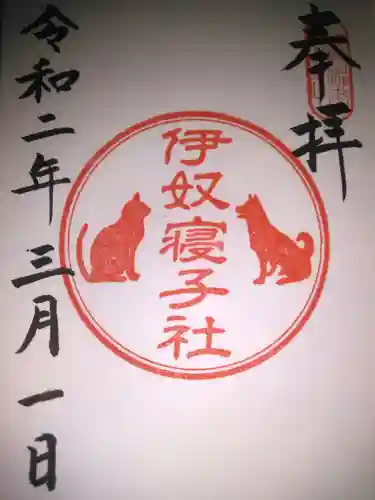 奉拝
伊奴寝子社
令和二年三月一日